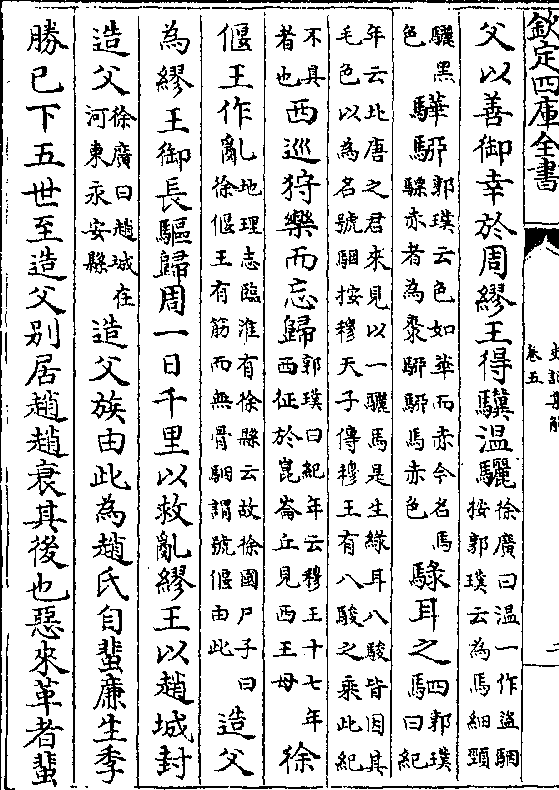 欽定四庫全書
卷五
父以善御幸於周繆王得驥温驪徐廣曰温一作盜駰按郭璞云為馬細頸
驪黑色驊駵郭璞云色如華而赤今名馬驃赤者為棗駵駵馬赤色騄耳之駟郭璞曰紀
年云北唐之君來見以一驪馬是生綠耳八駿皆因其毛色以為名號駰按穆天子傳穆王有八駿之乘此紀
不具者也西巡狩樂而忘歸郭璞曰紀年云穆王十七年西征於崑崙丘見西王母徐
偃王作亂地理志臨淮有徐縣云故徐國尸子曰徐偃王有筋而無骨駰謂號偃由此造父
為繆王御長驅歸周一日千里以救亂繆王以趙城封
造父徐廣曰趙城在河東永安縣造父族由此為趙氏自蜚廉生季
勝已下五世至造父别居趙趙衰其後也惡來革者蜚